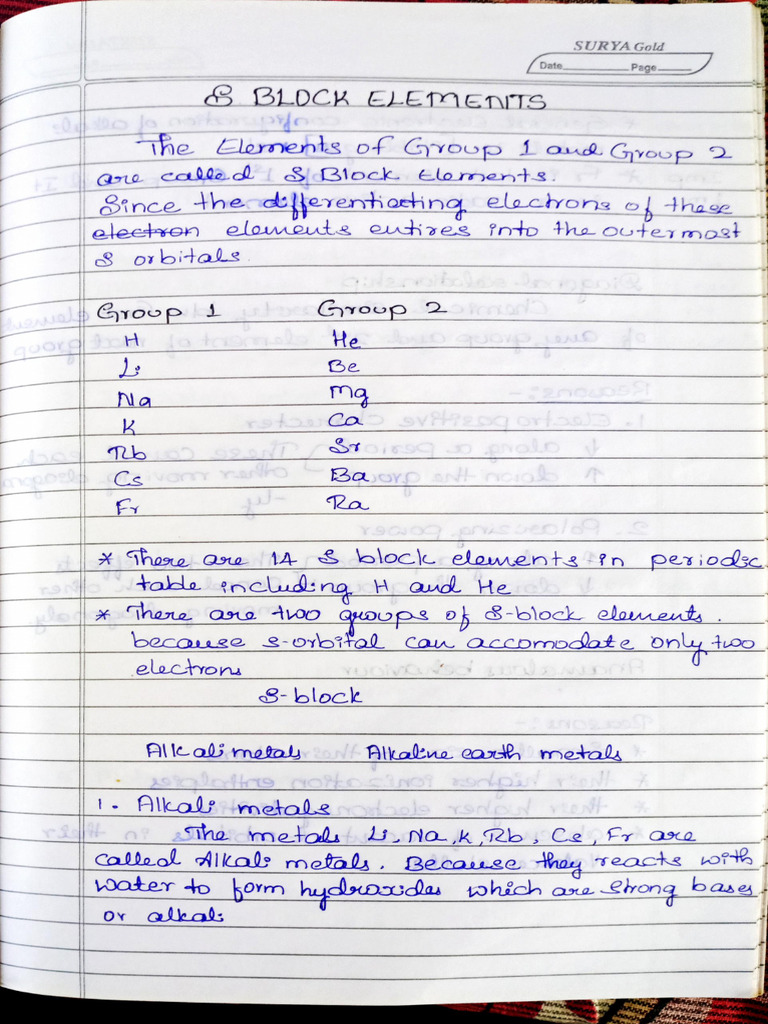 SURYA Gold
Date Page
S BLOCK ELEMENTS
The Elements of Group 1 and Group 2
are called S Block Elements.
Since the differentiating electrons of these
electron elements entires into the outermost
S orbitals.
Group 1 Group 2
H He
Li Be
Na Mg
K Ca
Rb Sr
Cs Ba
Fr Ra
* There are 14 S block elements in periodic
table including H and He
* There are two groups of S-block elements.
because s-orbital can accomodate only two
electrons
S-block
Alkali metals Alkaline earth metals
1. Alkali metals
The metals Li, Na, K, Rb, Cs, Fr are
called Alkali metals. Because they reacts with
water to form hydroxides which are strong bases
or alkali